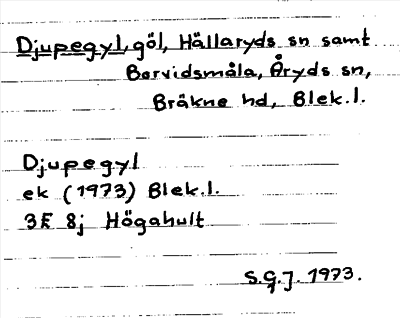 Djupegyl, göl, Hällaryds sn samt
Bervidsmåla, Åryds sn,
Bräkne hd, Blek.l.
Djupegyl
ek (1973) Blek.l.
3F 8j Högahult
S.G.J. 1973.